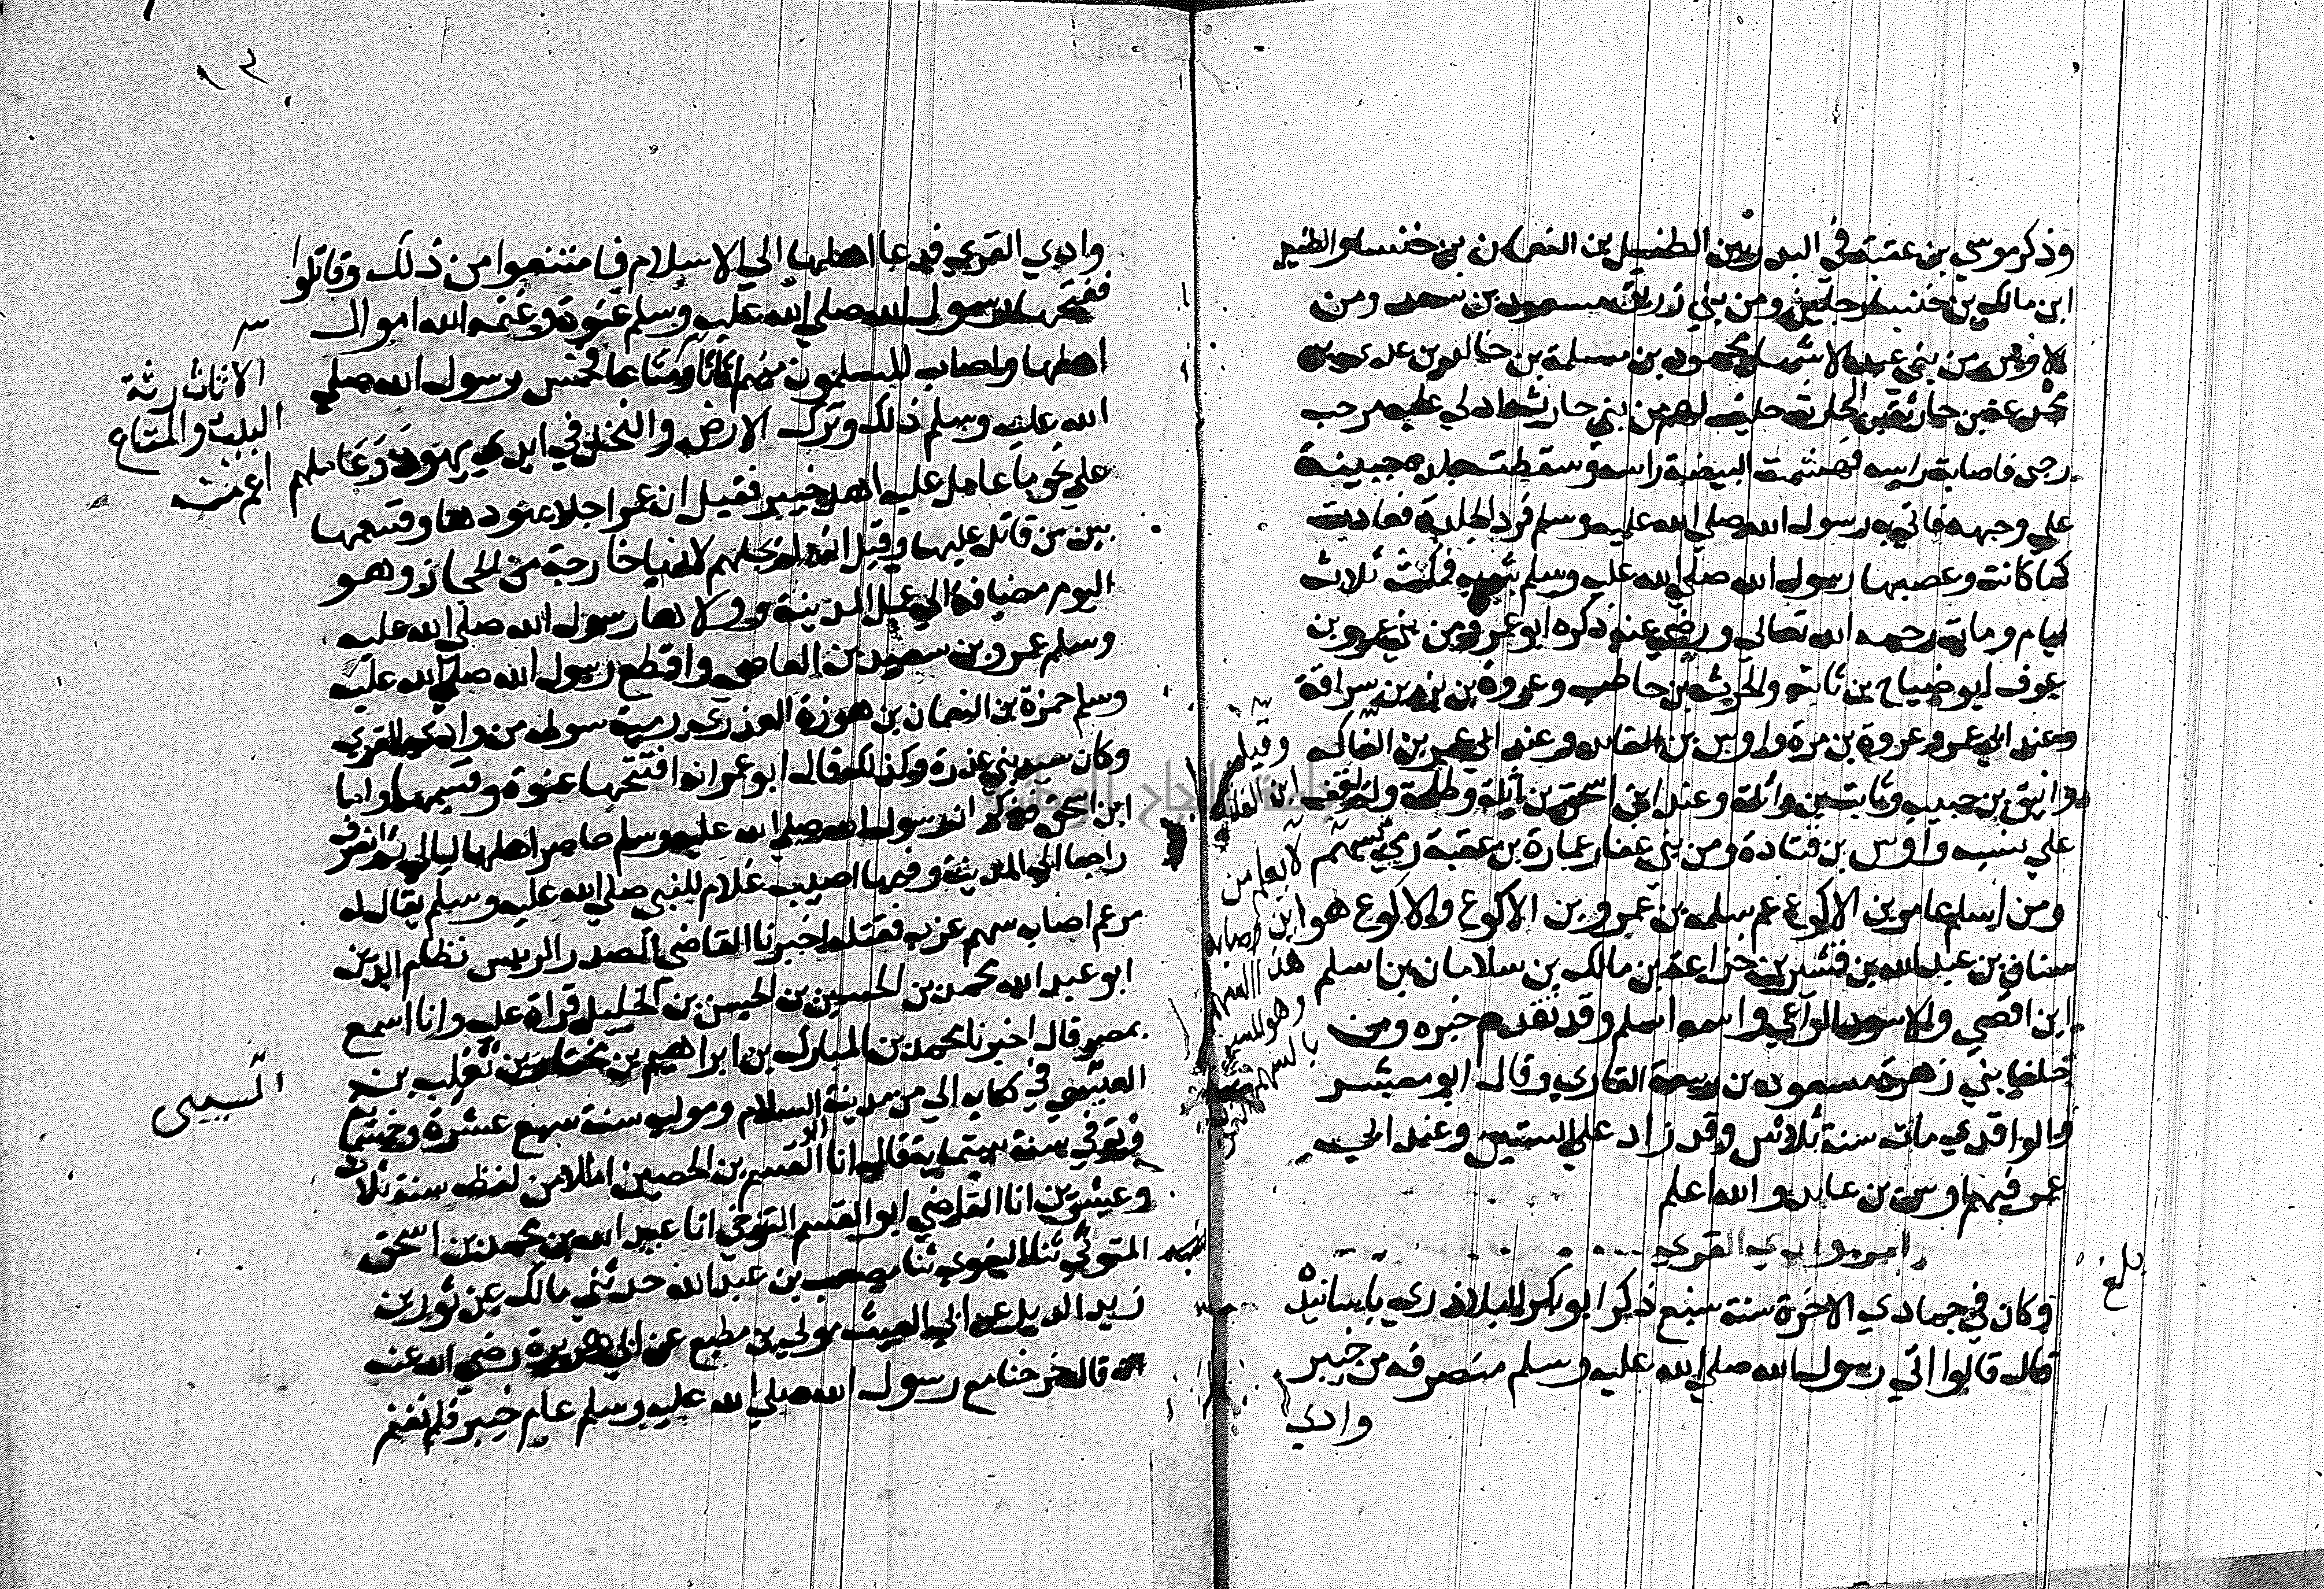 وذكر موسى بن عقبة في البدريين الطفيل بن النعمان بن خنسا والطفيل
ابن مالك بن خنسا رجلين ومن بني زريق مسعود بن سعد ومن
الاوس من بني عبد الاشهل محمود بن مسلمة بن خالد بن عدي بن
مجدعة بن حارثة بن الحارث حليف لهم من بني حارثة ادلي عليه مرحب
رحى فاصابت راسه فهشمت البيضة راسه وسقطت جلدة جبينه
علي وجهه فاتي به رسول الله صلي الله عليه وسلم فرد الجلدة فعادت
كما كانت وعصبها رسول الله صلي الله عليه وسلم بثوبه فمكث ثلاث
ايام ومات رحمه الله تعالي ورضي عنه ذكره ابو عمر ومن بني عمرو بن
عوف ابو ضياح بن ثابت والحرث بن حاطب وعروة بن مرة بن سراقة
وعند ابي عمر وعروة بن مرة واوس بن القايد وعند ابي عمر بن الفاكه
وانيف بن حبيب وثابت بن واثلة وعند ابن اسحق بن اثلة وطلحة ولم يقف
علي نسبه واوس بن قتادة ومن بني غفار عمارة بن عقبة رمي بسهم
ومن اسلم عامر بن الاكوع عم سلمه بن عمرو بن الاكوع والاكوع هو ابن
سنان بن عبد الله بن قشير بن خزاعة بن مالك بن سلامان بن اسلم
ابن افصي والاسود الراعي واسمه اسلم وقد تقدم خبره ومن
حلفا بني زهرة مسعود بن ربيعة القاري وقال ابو معشر
والواقدي مات سنة ثلاثين وقد زاد علي الستين وعند ابي
عمر فيهم اوس بن عابد والله اعلم
امر وادي القري
بلغ
وكان في جمادي الاخرة سنة سبع ذكر ابو بكر البلاذري باسانيده
قال قالوا اتي رسول الله صلي الله عليه وسلم منصرفه من خيبر
وادي
وقيل
ابن الفاكه
لا يعلم من
اصابه
هذا السهم
وادي القري فدعا اهلها الي الاسلام فامتنعوا من ذلك وقاتلوا
ففتحها رسول الله صلي الله عليه وسلم عنوة وغنمه الله اموال
اهلها واصاب المسلمون منهم اثاثا ومتاعا فخمس رسول الله صلي
الله عليه وسلم ذلك وترك الارض والنخل في ايدي يهود وعاملهم
علي نحو ما عامل عليه اهل خيبر فقيل ان عمر اجلا يهودها وقسمها
بين من قاتل عليها وقيل انه لم يجلهم لانها خارجة من الحجاز وهو
اليوم مضافة الي عمل المدينة وولاها رسول الله صلي الله عليه
وسلم عمرو بن سعيد بن العاصي واقطع رسول الله صلي الله عليه
وسلم حمزة بن النعمان بن هوزة العذري رمية سوط من وادي القري
وكان سيد بني عذرة وكذلك قال ابو عمر انه افتتحها عنوة وقسمها واما
ابن اسحق فذكر ان رسول الله صلي الله عليه وسلم حاصر اهلها ليالي ثم انصرف
راجعا الي المدينة وفيها اصيب غلام للنبي صلي الله عليه وسلم يقال له
مدعم اصابه سهم غرب فقتله اخبرنا القاضي الصدر الرييس نظام الدين
ابو عبد الله محمد بن الحسين بن الحسن بن الخليل قراة عليه وانا اسمع
بمصر قال اخبرنا محمد بن المبارك بن ابراهيم بن مختار بن تغلب بن
العيشي في كتابه الي من مدينة السلام ومولده سنة سبع عشرة وخمسماية
وتوفي سنة ستماية قال انا ابو القسم بن الحصين املا من لفظه سنة ثلاث
وعشرين انا القاضي ابو القسم التنوخي انا عبيد الله بن محمد بن اسحق
المتوثي ثنا البغوي ثنا مصعب بن عبد الله حدثني مالك عن ثور بن
زيد الديلي عن ابي الغيث مولي بن مطيع عن ابي هريرة رضي الله عنه
انه قال خرجنا مع رسول الله صلي الله عليه وسلم عام خيبر فلم نغنم
الاثاث رثة
البيت والمتاع
اعم منه